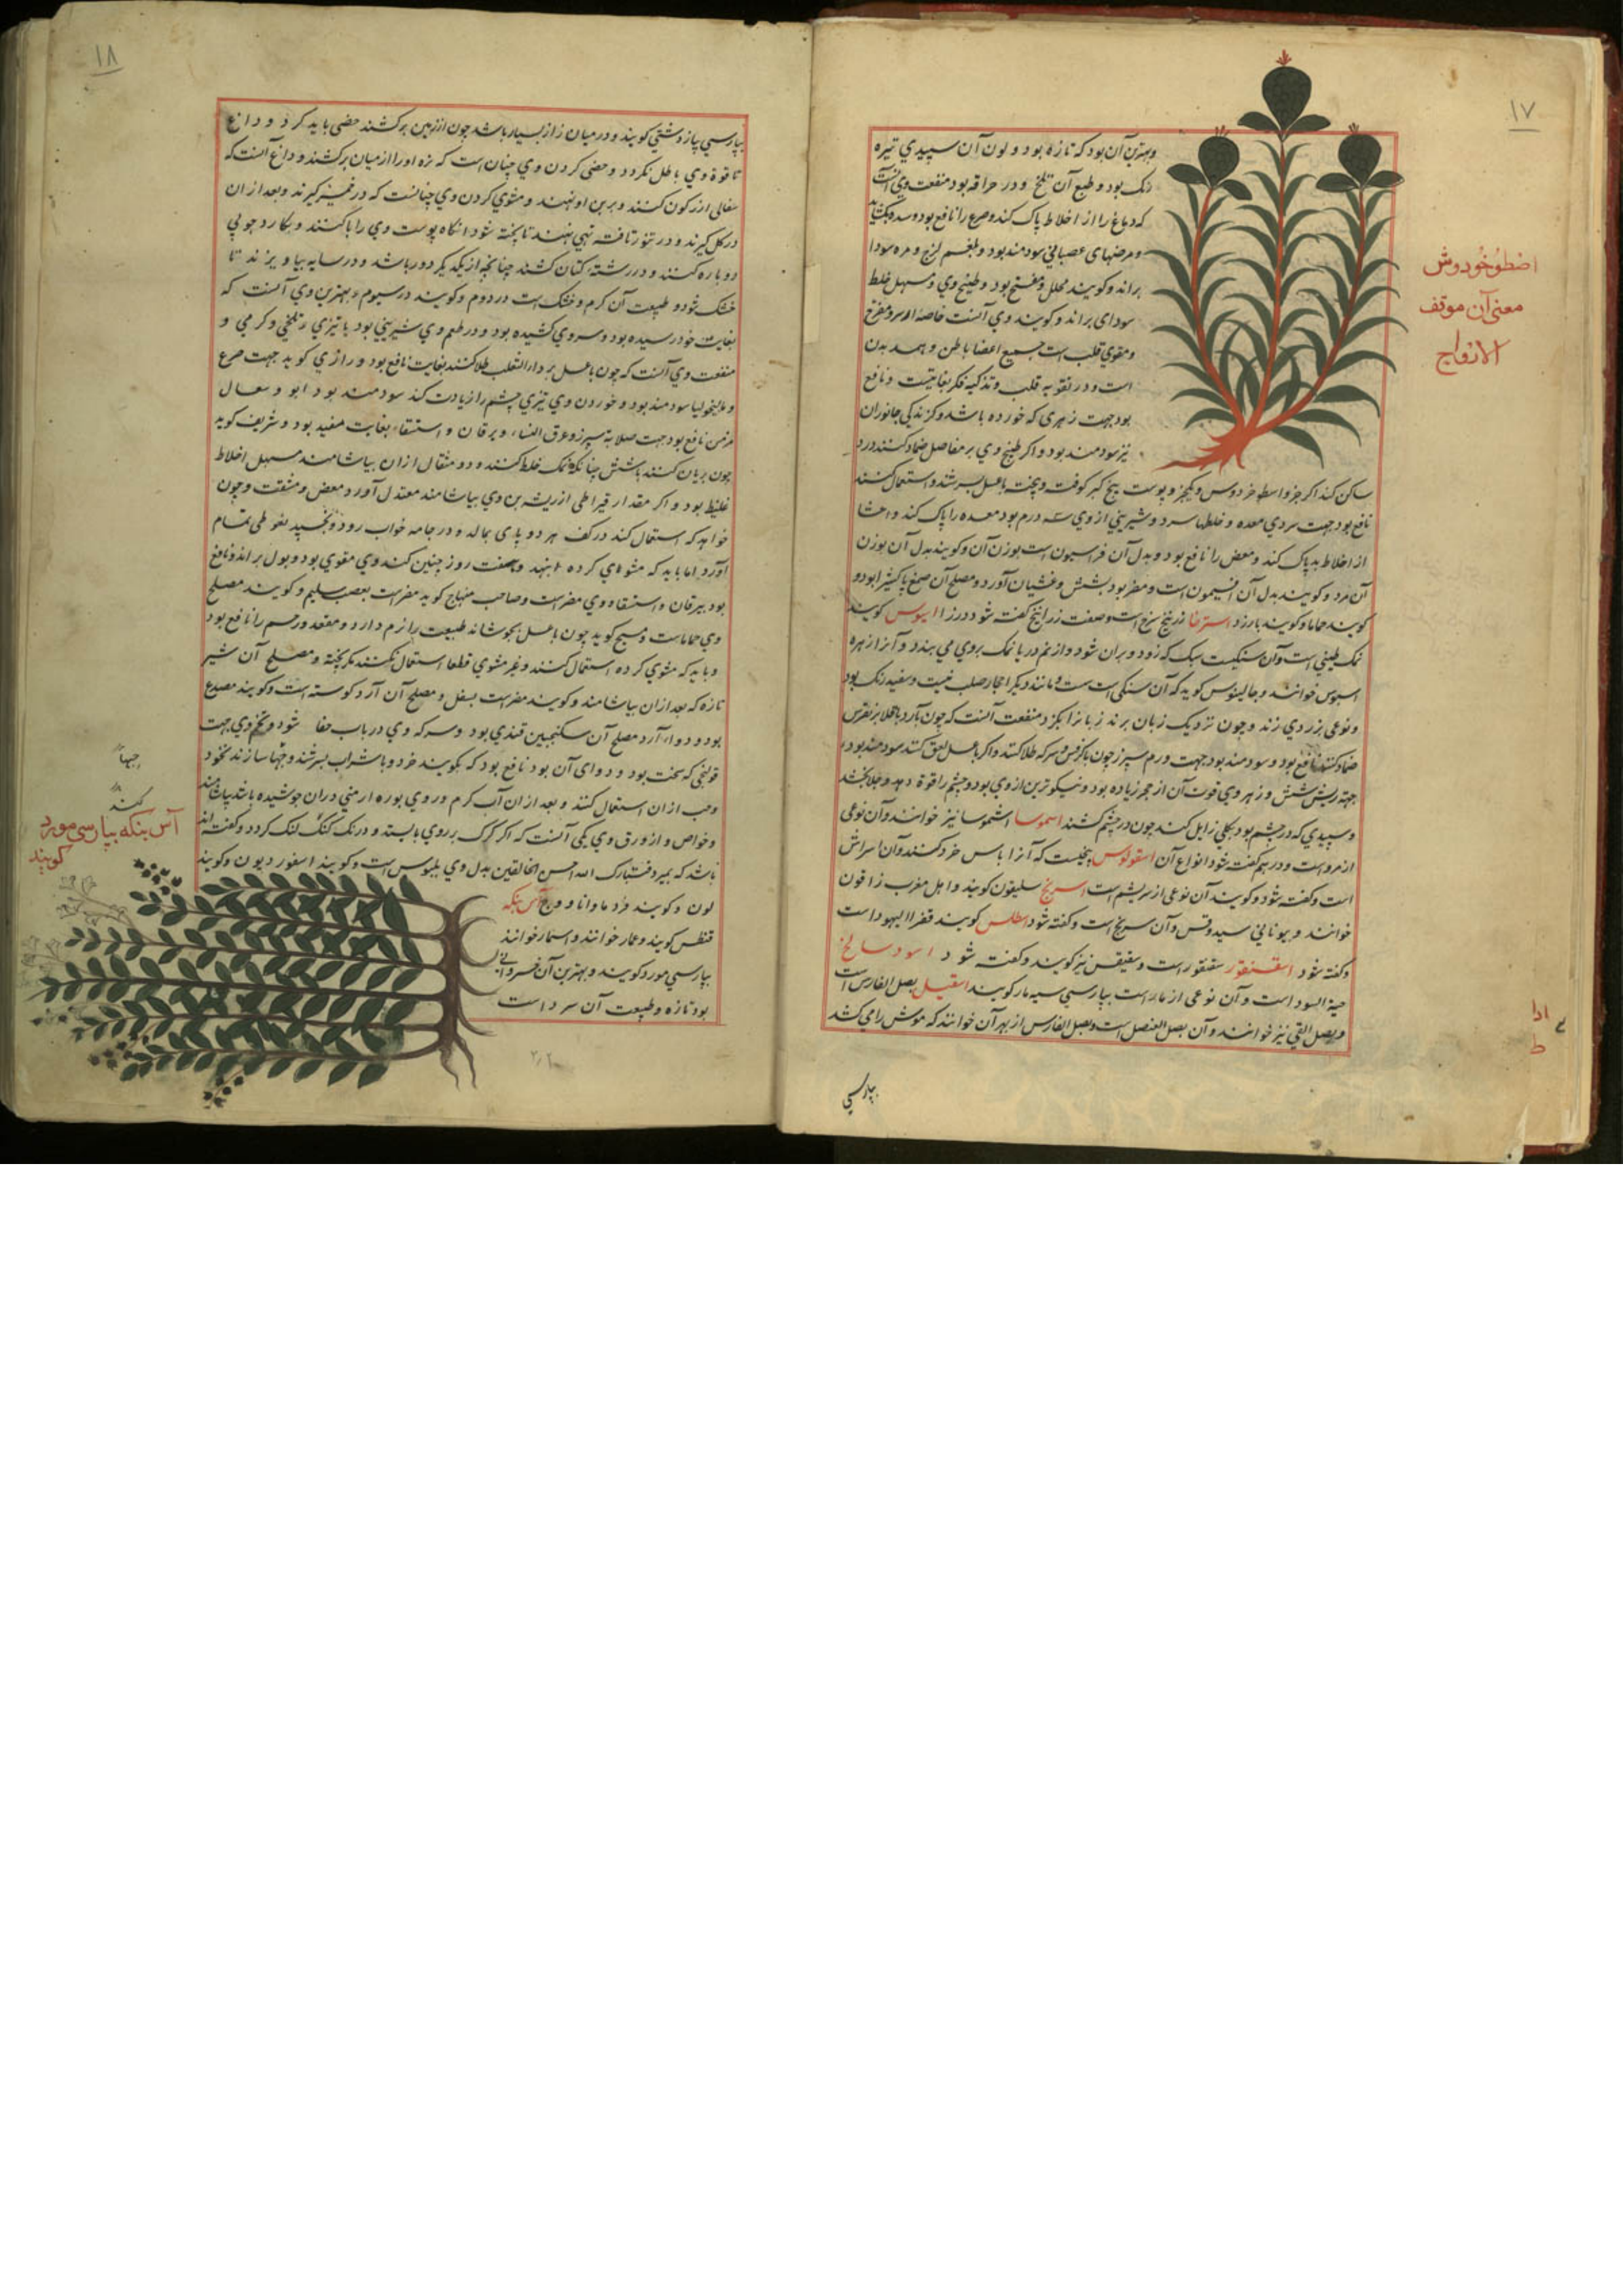 ١٧
وبهترین آن بود که تازه بود و لون آن سپیدی تیره
رنک بود و طبع آن تلخ و در حرافه بود منفعت وی آنست
که دماغ را از اخلاط پاک کند و صرع را نافع بود و سده بکشاید
و مرضهای عصبانی سودمند بود و بلغم لزج و مره سودا
براند و کویند محلل و مفتح بود و طبیخ وی مسهل خلط
سودای براند و کویند وی آنست خاصه او سرو مفرح
و مقوی قلب است جمیع اعضا باطن و همه بدن
است و در تقویه قلب و تذکیه فکر بغایتست و نافع
بود جهت زهری که خورده باشد و کزندکی جانوران
نیز سودمند بود و اکر طبیخ وی بر مفاصل ضماد کنند درد
ساکن کند اکر جزو اسطوخردوس و یکجزو پوست بیخ کبر کوفته و پخته با عسل بسرشند و استعمال کنند
نافع بود جهت سردی معده و خلطها سرد و شیرینی از وی سه درم بود معده را پاک کند و احشا
از اخلاط بد پاک کند و مغص را نافع بود و بدل آن فراسیون است بوزن آن و کویند بدل آن بوزن
آن مرد و کویند بدل آن افتیمون است و مضر بود بشش و غثیان آورد و مصلح آن صمغ یا کتیرا بود و
کویند حماما و کویند بارزد استرخا زرنیخ سرخ است و صفت زرانیخ کفته شود در زا اسیوس کویند
نمک چینی است و آن سنکیست سبک که زود ویران شود و از نم دریا نمک بروی می بندد و آنرا زهره
اسیوس خوانند و جالینوس کوید که آن سنکی است سست و مانند دیکر احجار صلب نیست و سفید رنک بود
و نوعی بزردی زند و چون نزدیک زبان برند زبانرا بکزد منفعت آنست که چون با آرد باقلا بر نقرس
ضماد کنند نافع بود و سودمند بود جهت ورم سپرز چون با کرفس و سرکه طلا کنند و اکر با عسل لعق کنند سودمند بود
جهته ریش شش و زهر وی قوت آن از حجر زیاده بود و نیکوترین از وی بود و چشم را قوة دهد و جلا بخشد
و سپیدی که در چشم بود بکلی زایل کند چون در چشم کشند اسموسا اشموسا نیز خوانند و آن نوعی
از مرو است و در میم کفته شود انواع آن اسقولوس بیخیست که آنرا با س خرد کنند و آن اسراش
است و کفته شود و کویند آن نوعی از سریشم است اسرنج سلیقون کویند و اهل مغرب زرقون
خوانند و بیونانی سیدوقس و آن سرنج است و کفته شود اسطلس کویند قفر االیهود است
و کفته شود اسقنقور سقنقور است و سقیقس نیز کویند و کفته شود اسود سالخ
حیة السود است و آن نوعی از مار است بپارسی سیه مار کویند اسقیل بصل الفارس است
و بصل القی نیز خوانند و آن بصل العنصل است و بصل الفارس از بهر آن خوانند که موش را می کشد
بپارسی
اضطوخودوش
معنی آن موقف
الارواح
١٨
بپارسی پیاز دشتی کویند و در میان زاز بسیار باشد چون از زمین برکشند حضی باید کرد و داغ
تا قوة وی باطل نکردد و حضی کردن وی چنان است که زه او را از میان برکشند و داغ آنست که
سفالی از زکون کنند و بر بن او نهند و مشوی کردن وی چنانست که در خمیر کیرند و بعد از ان
در کل کیرند و در تنور تافته نهی نهند تا پخته شود انکاه پوست وی را پاکنند و بکارد چوبی
دوباره کنند و در رشته کتان کشند چنانچه از یکدیکر دور باشد و در سایه بیاویزند تا
خشک شود و طبیعت آن کرم و خشک است در دوم و کویند در سیوم و بهترین وی آنست که
بغایت خود رسیده بود و سروی کشیده بود و در طعم وی شیرینی بود با تیزی و تلخی و کرمی و
منفعت وی آنست که چون با عسل بر داء الثعلب طلا کنند بغایت نافع بود و رازی کوید جهت صرع
و مالیخولیا سودمند بود و خوردن وی تیزی چشم را زیادت کند سودمند بود ابو و سعال
مزمن نافع بود جهت صلابة سپرز و عرق النساء و یرقان و استسقاء بغایت مفید بود و شریف کوید
چون بریان کنند با شش چنانکه نمک خلط کنند و دو مثقال از ان بیاشامند مسهل اخلاط
غلیظ بود و اکر مقدار قیراطی از ریشه بن وی بیاشامند معتدل آورد مغص و مشقت و چون
خواهد که استعمال کند در کف هر دو پای بمالد و در جامه خواب رود و بخسپد نعوظی تمام
آورد اما باید که مشوی کرده بنهند و هفت روز چنین کند وی مقوی بود و بول براند و نافع
بود بیرقان و استسقا و وی مضر است و صاحب منهاج کوید مضر است بعصب سلیم و کویند مصلح
وی حماماست و مسیح کوید چون با عسل بجوشاند طبیعت را نرم دارد و مقعد و رحم را نافع بود
و باید که مشوی کرده استعمال کنند و غیر مشوی قطعا استعمال نکنند مکر پخته و مصلح آن شیر
تازه که بعد از ان بیاشامند و کویند مضر است بسفل و مصلح آن آرد کوسنه است و کویند مصدع
بود و دوار آرد مصلح آن سکنجبین قندی بود و سرکه وی در باب خفا شود و تخم وی جهت
قولنجی که سخت بود و دوای آن بود نافع بود که بکویند خرد و با شراب بسرشند و حبها سازند نخود
و حب از ان استعمال کنند و بعد از ان آب کرم و روی بوره ارمنی دران جوشیده باشند بیاشامند
و خواص و از ورق وی یکی آنست که اکر کرک بر روی بایستد و درنک کند لنک کردد و کفته اند
باشد که بمیرد فتبارک الله احسن الخالقین بدل وی بلبوس است و کویند اسفور دیون و کویند
لون و کویند مرد ماوانا و ورج آس بنکه
قنطس کویند و عمار خوانند و اسمار خوانند
بپارسی مورد کویند و بهترین آن خسروانی
بود تازه و طبیعت آن سرد است
حبها
کنند
آس بنکه بپارسی مورد
کویند